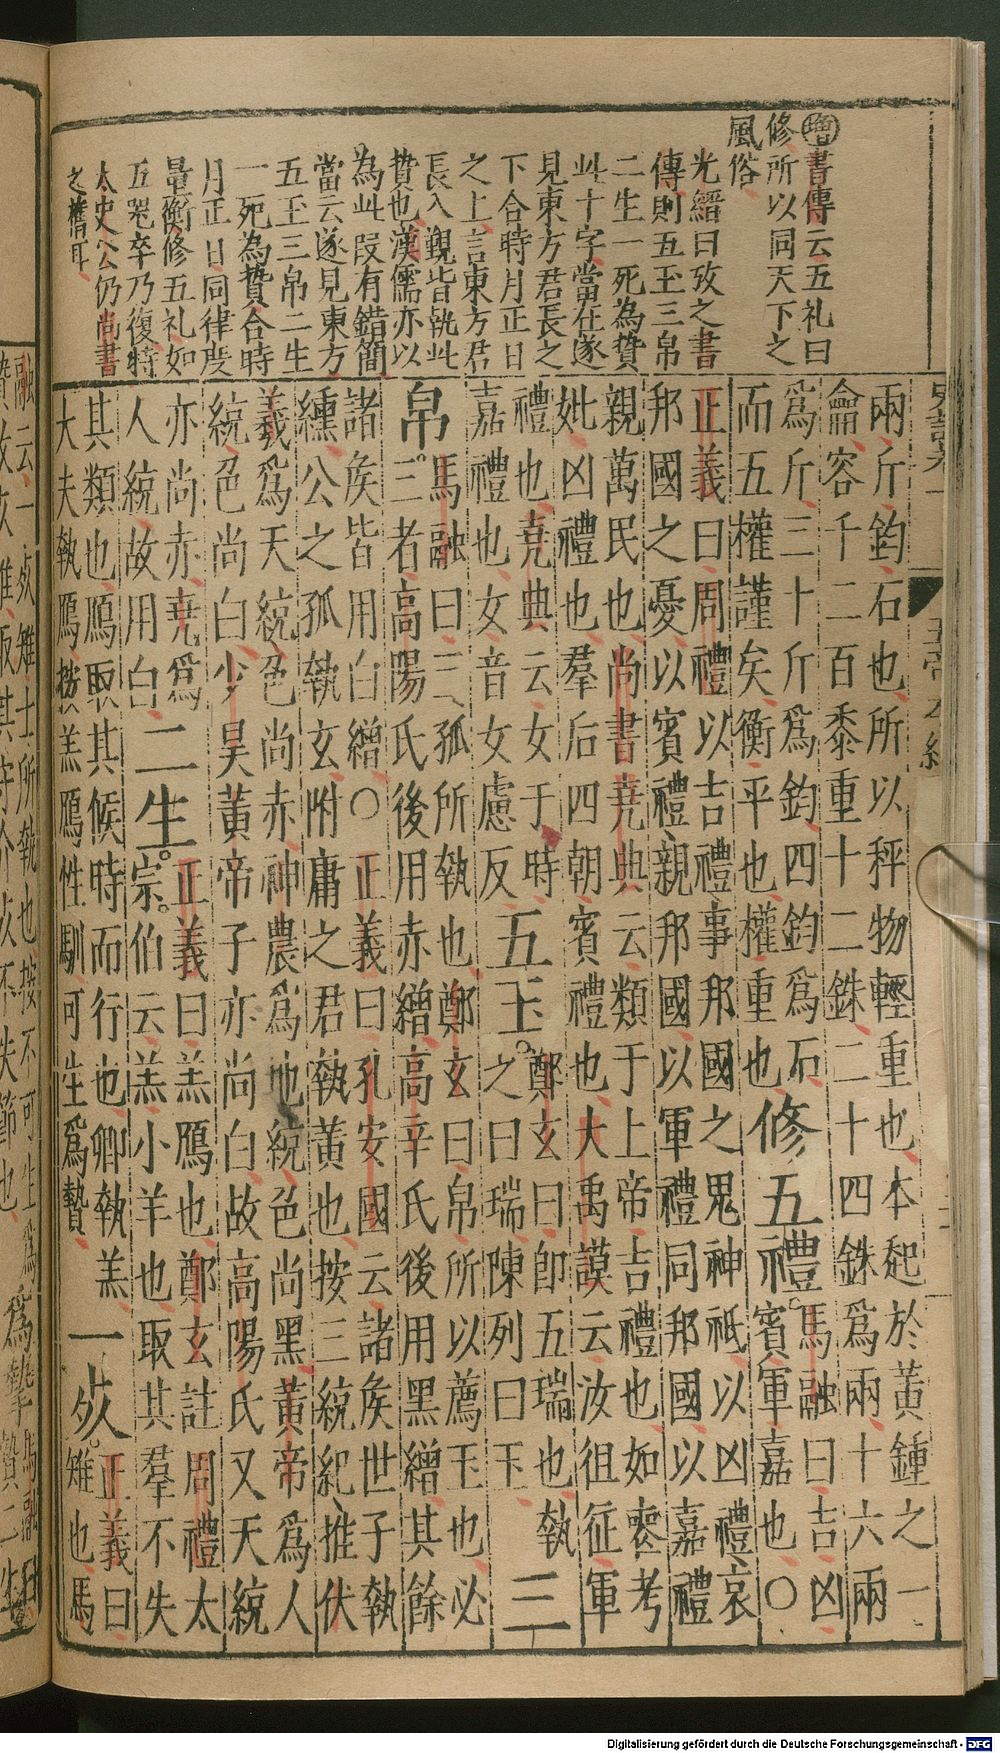 增書傳云五礼曰
修所以同天下之
風俗
光縉曰攷之書
傳則五玉三帛
二生一死為贄
此十字當在遂
見東方君長之
下合時月正日
之上言東方君
長入覲皆執此
贄也漢儒亦以
為此段有錯簡
當云遂見東方
五玉三帛二生
一死為贄合時
月正日同律度
量衡修五礼如
五器卒乃復特
太史公仍尚書
之舊耳
兩斤鈞石也所以秤物輕重也本起於黃鍾之一
龠容千二百黍重十二銖二十四銖爲兩十六兩
爲斤三十斤爲鈞四鈞爲石
而五權謹矣衡平也權重也
修五禮。
馬融曰吉凶
賓軍嘉也〇
正義曰周禮以吉禮事邦國之鬼神祗以凶禮哀
邦國之憂以賓禮親邦國以軍禮同邦國以嘉禮
親萬民也尚書堯典云類于上帝吉禮也如喪考
妣凶禮也羣后四朝賓禮也大禹謨云汝徂征軍
禮也堯典云女于時
嘉禮也女音女慮反
五玉。
鄭玄曰即五瑞也執
之曰瑞陳列曰玉
三
帛。
馬融曰三孤所執也鄭玄曰帛所以薦玉也必
三者高陽氏後用赤繒高辛氏後用黑繒其餘
諸侯皆用白繒〇正義曰孔安國云諸侯世子執
纁公之孤執玄附庸之君執黃也按三統紀推伏
羲爲天統色尚赤神農爲地統色尚黑黃帝爲人
統色尚白少昊黃帝子亦尚白故高陽氏又天統
亦尚赤堯爲
人統故用白
二生。
正義曰羔鴈也鄭玄註周禮太
宗。伯云羔小羊也取其羣不失
其類也鴈取其候時而行也卿執羔
大夫執鴈按羔鴈性馴可生爲贄
一死。
正義曰
雉也馬
融云一死雉士所執也按不可生爲
贄故死雉取其守介死不失節也
爲摯
馬融曰
贄二生
Digitalisierung gefördert durch die Deutsche Forschungsgemeinschaft - DFG